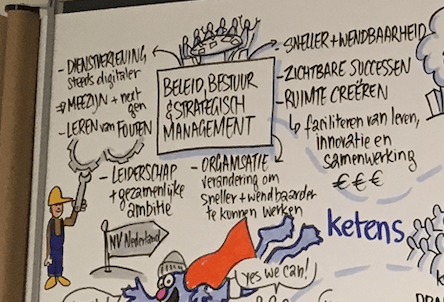 - DIENSTVERLENING
steeds digitaler
→ MEEZIJN + next
gen
- LEREN van FOUTEN
BELEID, BESTUUR
& STRATEGISCH
MANAGEMENT
- SNELLER + WENDBAARHEID
- ZICHTBARE SUCCESSEN
- RUIMTE CREËREN
↳ faciliteren van leren,
innovatie en
samenwerking
€€€
- LEIDERSCHAP
+ gezamenlijke
ambitie
- ORGANISATIE
verandering om
sneller + wendbaarder
te kunnen werken
NV Nederland
ketens
yes we can!